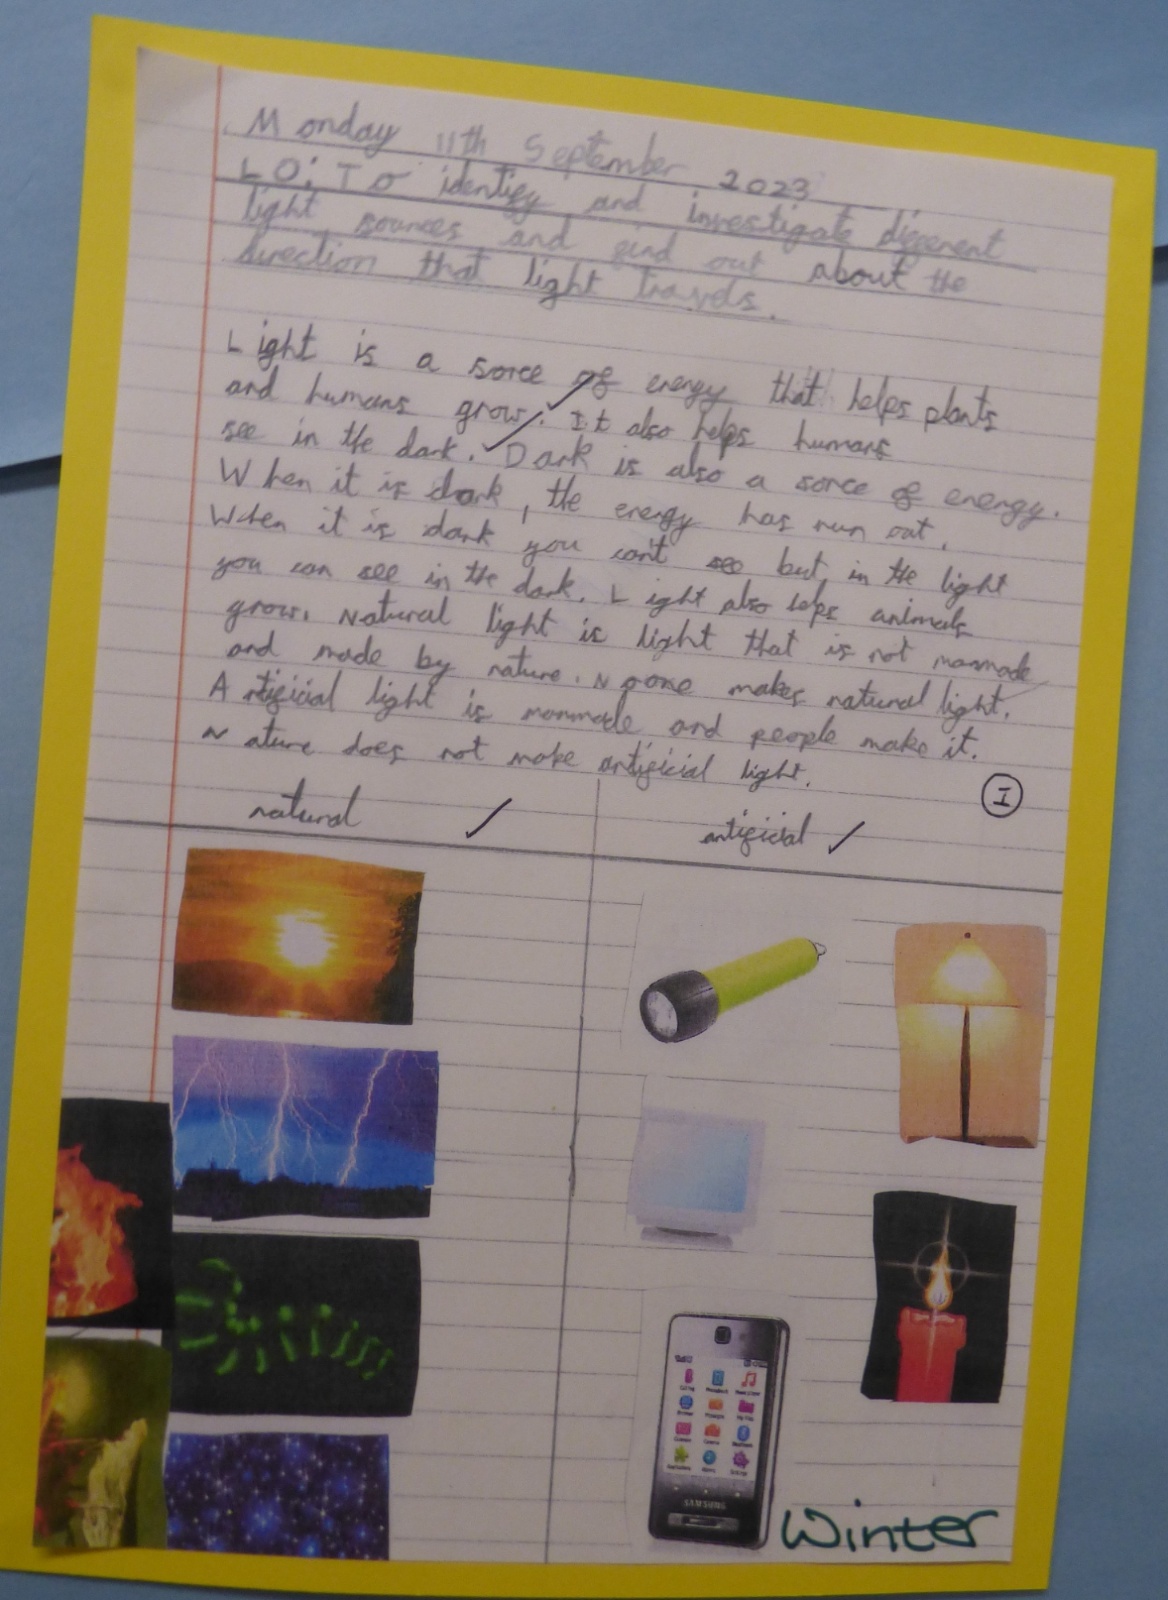 Monday 11th September 2023
LO: To identify and investigate different
light sources and find out about the
direction that light travels.
Light is a sorce of energy that helps plants
and humans grow. It also helps humans
see in the dark. Dark is also a sorce of energy.
When it is dark, the energy has run out.
When it is dark you can't see but in the light
you can see in the dark. Light also helps animals
grow. Natural light is light that is not manmade
and made by nature. No one makes natural light.
Artificial light is manmade and people make it.
Nature does not make artificial light.
I
natural
artificial
SAMSUNG
Winter